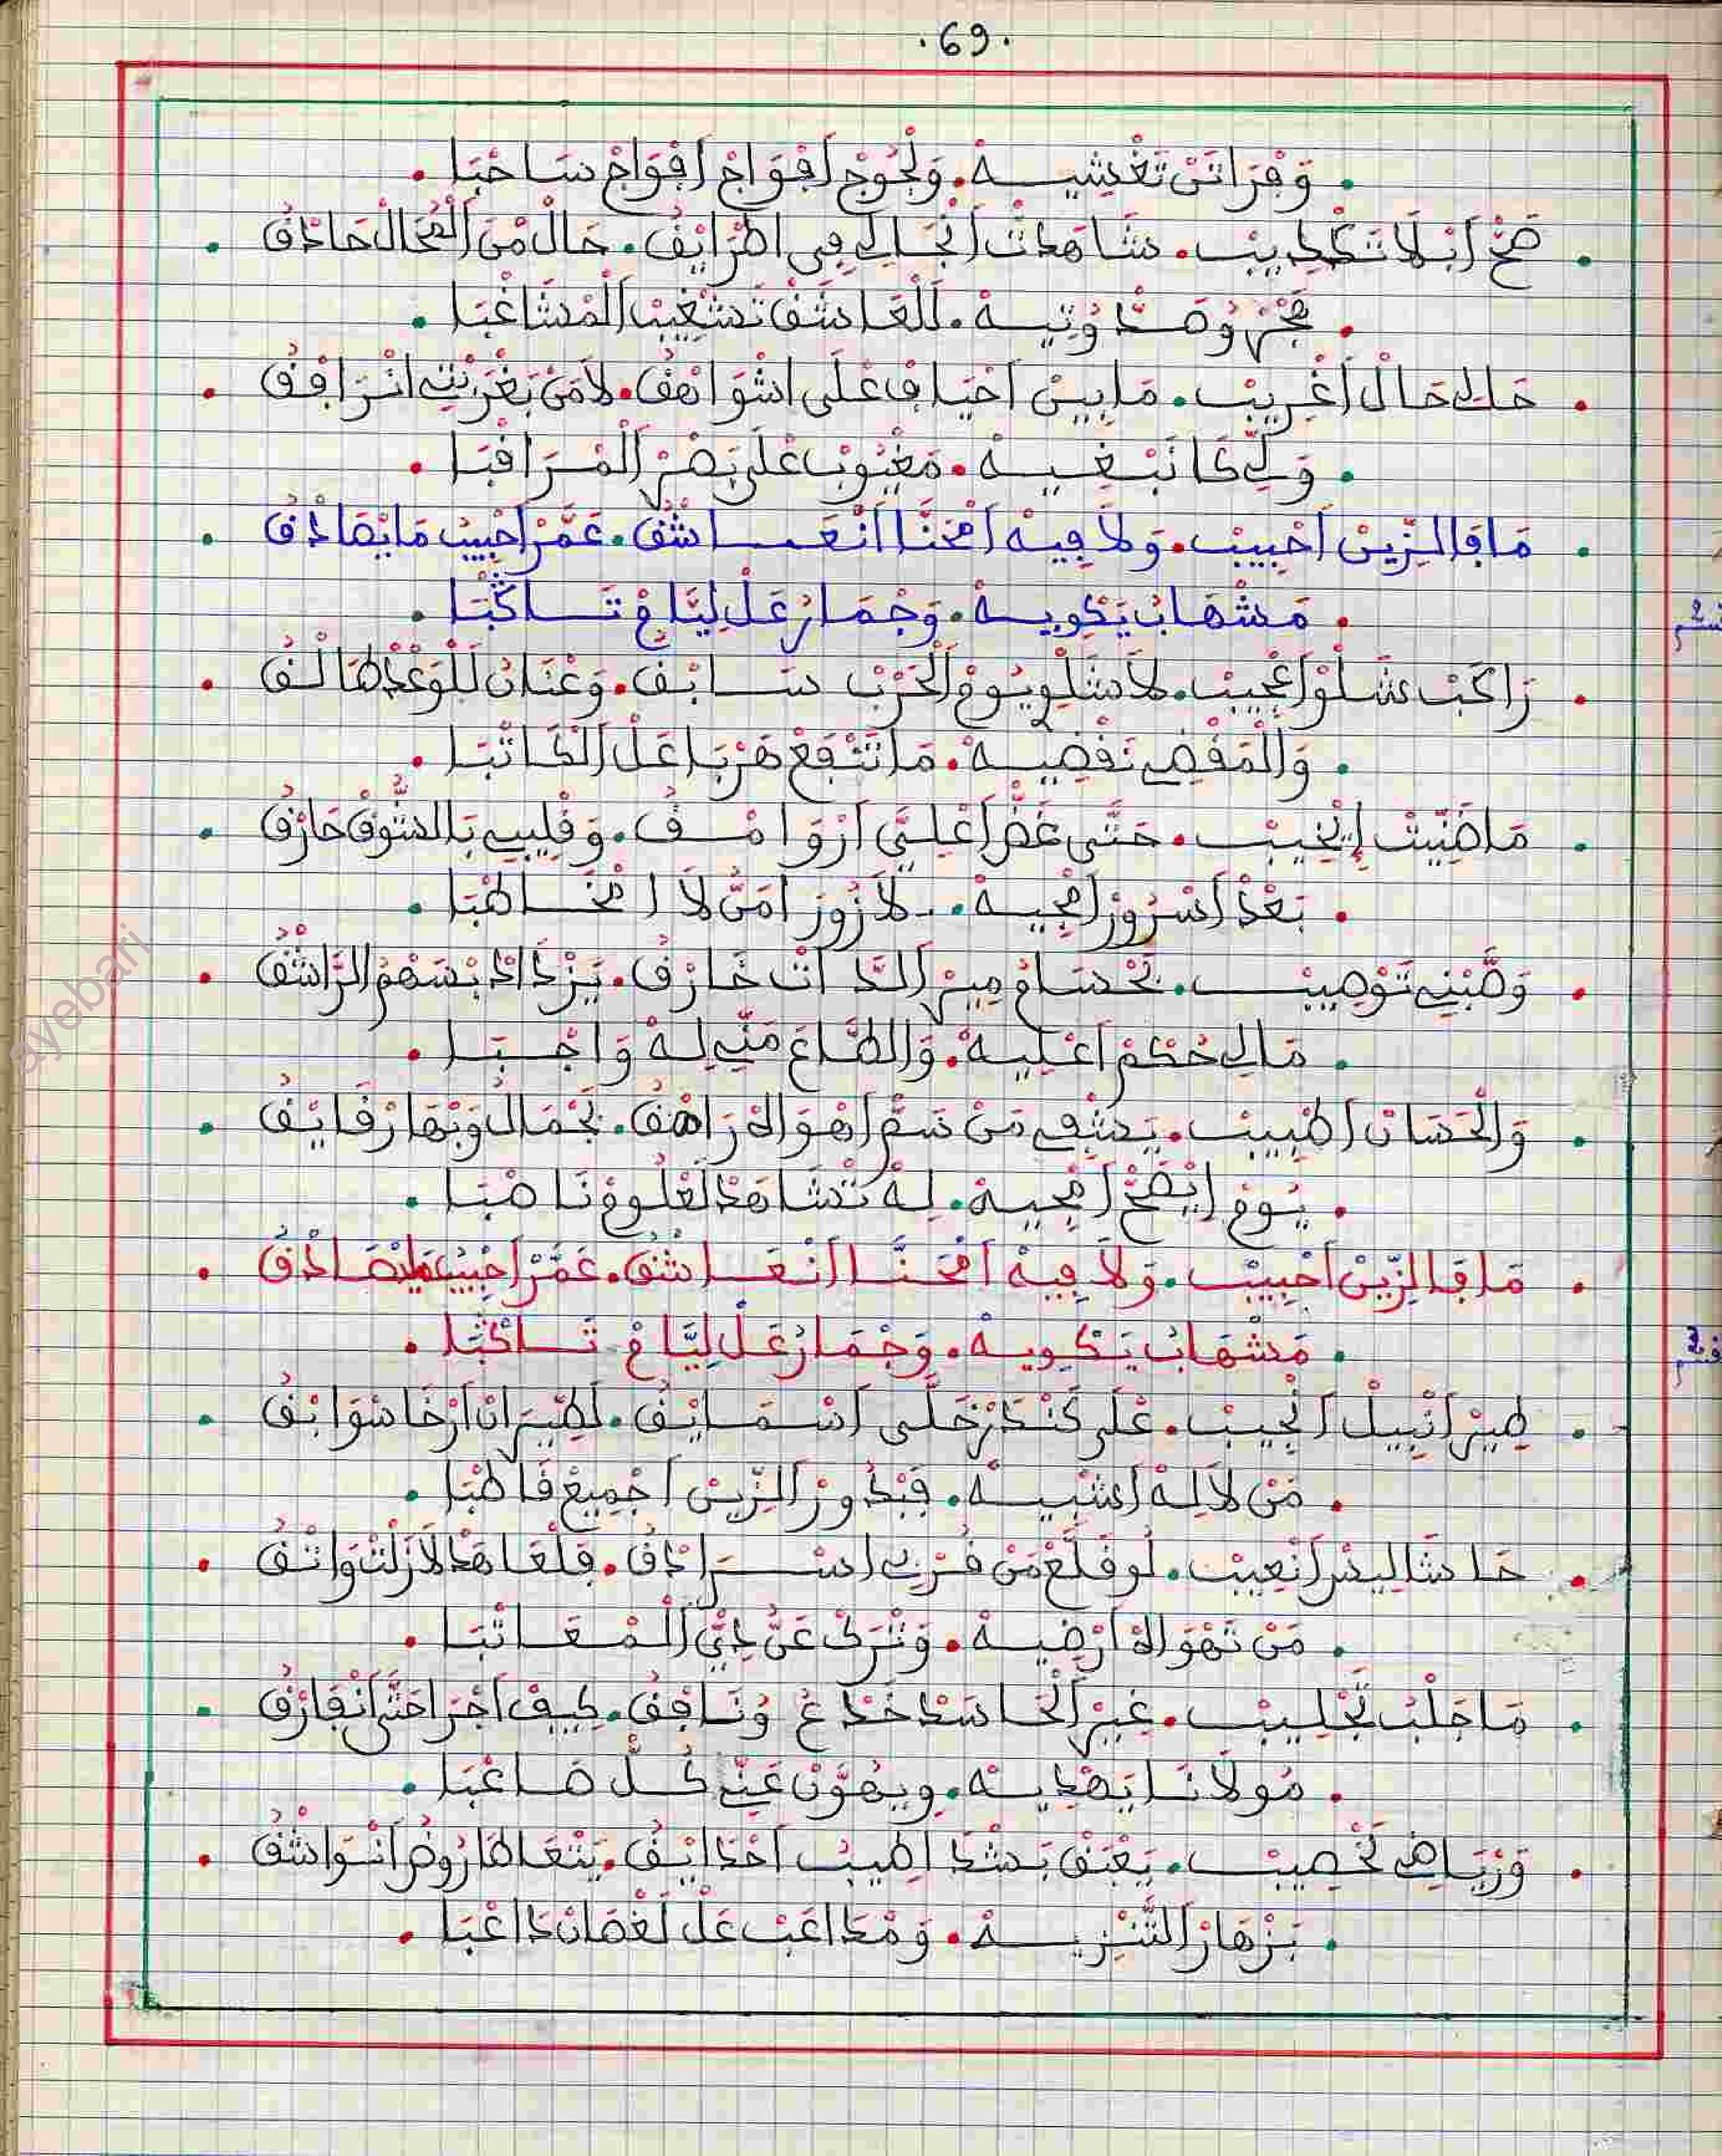 .69.
. وَفْرَاتَنْ تَغْشِيهْ. وَلْجُوجْ اَفْوَاجْ اَفْوَاجْ سَاحْبَا .
. صَحْ اَبْلَا تَكْذِيبْ. شَاهَدْتْ اَنْجَالِي فِي اطْرَايْفُ. حَالْ مْنَ الْمْحَالْ حَادْقُ .
. وُتِيهْ. لَلْعَاشَقْ تَشْغِيبْ الْمْشَاغْبَا .
. حَالِي حَالْ اَغْرِيبْ. مَابِينْ اَحْيَافِ عْلَى اشْوَاهْقُ. لَامَنْ بَغْرَبْتِي اتْرَافْقُ .
. وَلِّي كَا نَبْغِيهْ. مَغْيُوبْ عْلَى بَصْرْ الْمْرَاقْبَا .
. مَافَالزِّينْ اَحْبِيبْ. وَلَا فِيهْ اَمْحَنَّا اَنْعَاشْقُ. عَمَّرْ اَحْبِيبْ مَايْصَادْقُ .
. مَشْهَابْ يَكْوِيهْ. وَجْمَارْ عَلْ لِيَّامْ تَاكْبَا .
. رَاكَبْ شَلْوْ اَعْجِيبْ. لَاشَلْوِ يُومْ الْحَرْبْ سَابْقُ. وَعْنَانْ لَلْوَغْدْ طَالْقُ .
. وَالْمَقْضِي نَقْضِيهْ. مَاتَنْفَعْ هَرْبَا عَلْ الْكَاتْبَا .
. مَاضَنِّيتْ إِيْخِيبْ. حَتَّى غَضَّ اعْلِيَّ اَرْوَامْقُ. وَقْلِيبِي بَالشُّوقْ حَازْقُ .
. بَعْدْ اَسْرُورْ اَمْجِيهْ. لَازُورْ اَمَنُّ لَا امْخَاطْبَا .
. وَصَّبْنِي تَوْصِيبْ. بَحْسَامْ مِيرْ الذَّاتْ خَارْقُ. يَزْدَادْ بْسَهْمْ الرَّاشْقُ .
. مَالِي حُكْمْ اَعْلِيهْ. وَالطَّاعَ مَنِّي لِهْ وَاجْبَا .
. وَالْحَسَانْ اَطْبِيبْ. يَشْفِي مَنْ سَمّْ اَهْوَاهْ رَاهْقُ. بَجْمَالْ وَبْهَا رْقَايْقُ .
. يُومْ اَيْصَحّْ اَمْجِيهْ. لِهْ تْشَاهَدْ لَعْلُومْ نَاصْبَا .
. مَافَالزِّينْ اَحْبِيبْ. وَلَا فِيهْ اَمْحَنَّا اَنْعَاشْقُ. عَمَّرْ اَحْبِيبْ مَايْصَادْقُ .
. مَشْهَابْ يَكْوِيهْ. وَجْمَارْ عَلْ لِيَّامْ تَاكْبَا .
. طِيرْ اَنْبِيلْ اَنْجِيبْ. عْلَى كَنْدَرْ خَلَّى اسْمَايْقُ. لَطْيَرَانْ اَرْخَا سْوَابْقُ .
. مَنْ لَا لِهْ اَشْبِيهْ. فَبْدُورْ الزِّينْ اَجْمِيعْ قَاطْبَا .
. حَاشَا لِيسْ اَنْعِيبْ. لُو قَلَّعْ مَنْ قُرْبِي اسْرَادْقُ. فَلْعَاهَدْ لَازَلْتْ وَاتْقُ .
. مَنْ نَهْوَاهْ اَرْضِيهْ. وَنْتَرْكْ عَنُّ ذِيَّ الْمْعَاتْبَا .
. مَاجَلْبُ تَجْلِيبْ. غِيرْ الْحَاسَدْ خَدَّعْ وُنَافْقُ. كِيفْ اَجْرَا حَتَّى اَنْفَارْقُ .
. مُولَانَا يَهْدِيهْ. وِيهَوَّنْ عَنِّي كُلّْ صَاعْبَا .
. وَرْيَاضِي تَخْصِيبْ. يَعْبَقْ بَشْدَا اَطِيبْ اَحْدَايْقُ. يَتْعَاطَا رُوضْ اَنْوَاشْقُ .
. بَزْهَارْ التَّنْزِيهْ. وَمْدَاعَبْ عَلْ لَغْصَانْ دَاعْبَا .
ayebari